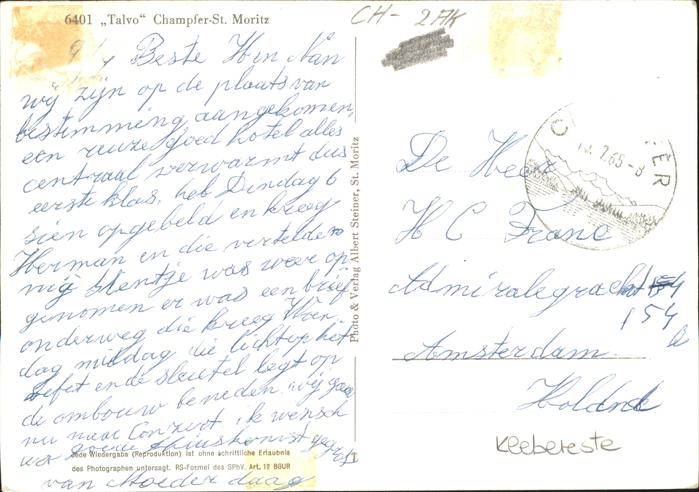 6401 „Talvo“ Champfer-St. Moritz
CH- 2AK
Beste Wim Nan
wij zijn op de plaats van
bestemming aangekomen,
een reuze goed hotel alles
centraal verwarmt dus
eerste klas, heb Dinsdag 6
opgebeld en kreeg
Herman en die vertelde
mij was weer op
genomen er was een brief
onderweg die kreeg
dag middag die licht op het
en de sleutel legt op
de ombouw beneden. wij gaan
nu naar ik wensch
van Moeder daag
Jede Wiedergabe (Reproduktion) ist ohne schriftliche Erlaubnis
des Photographen untersagt. RS-Formel des SPhV. Art. 12 BGUR
Photo & Verlag Albert Steiner, St. Moritz
7.65-8
De Heer
H C Franc
Admiralegracht
154
Amsterdam.
Holland
Kleebereste